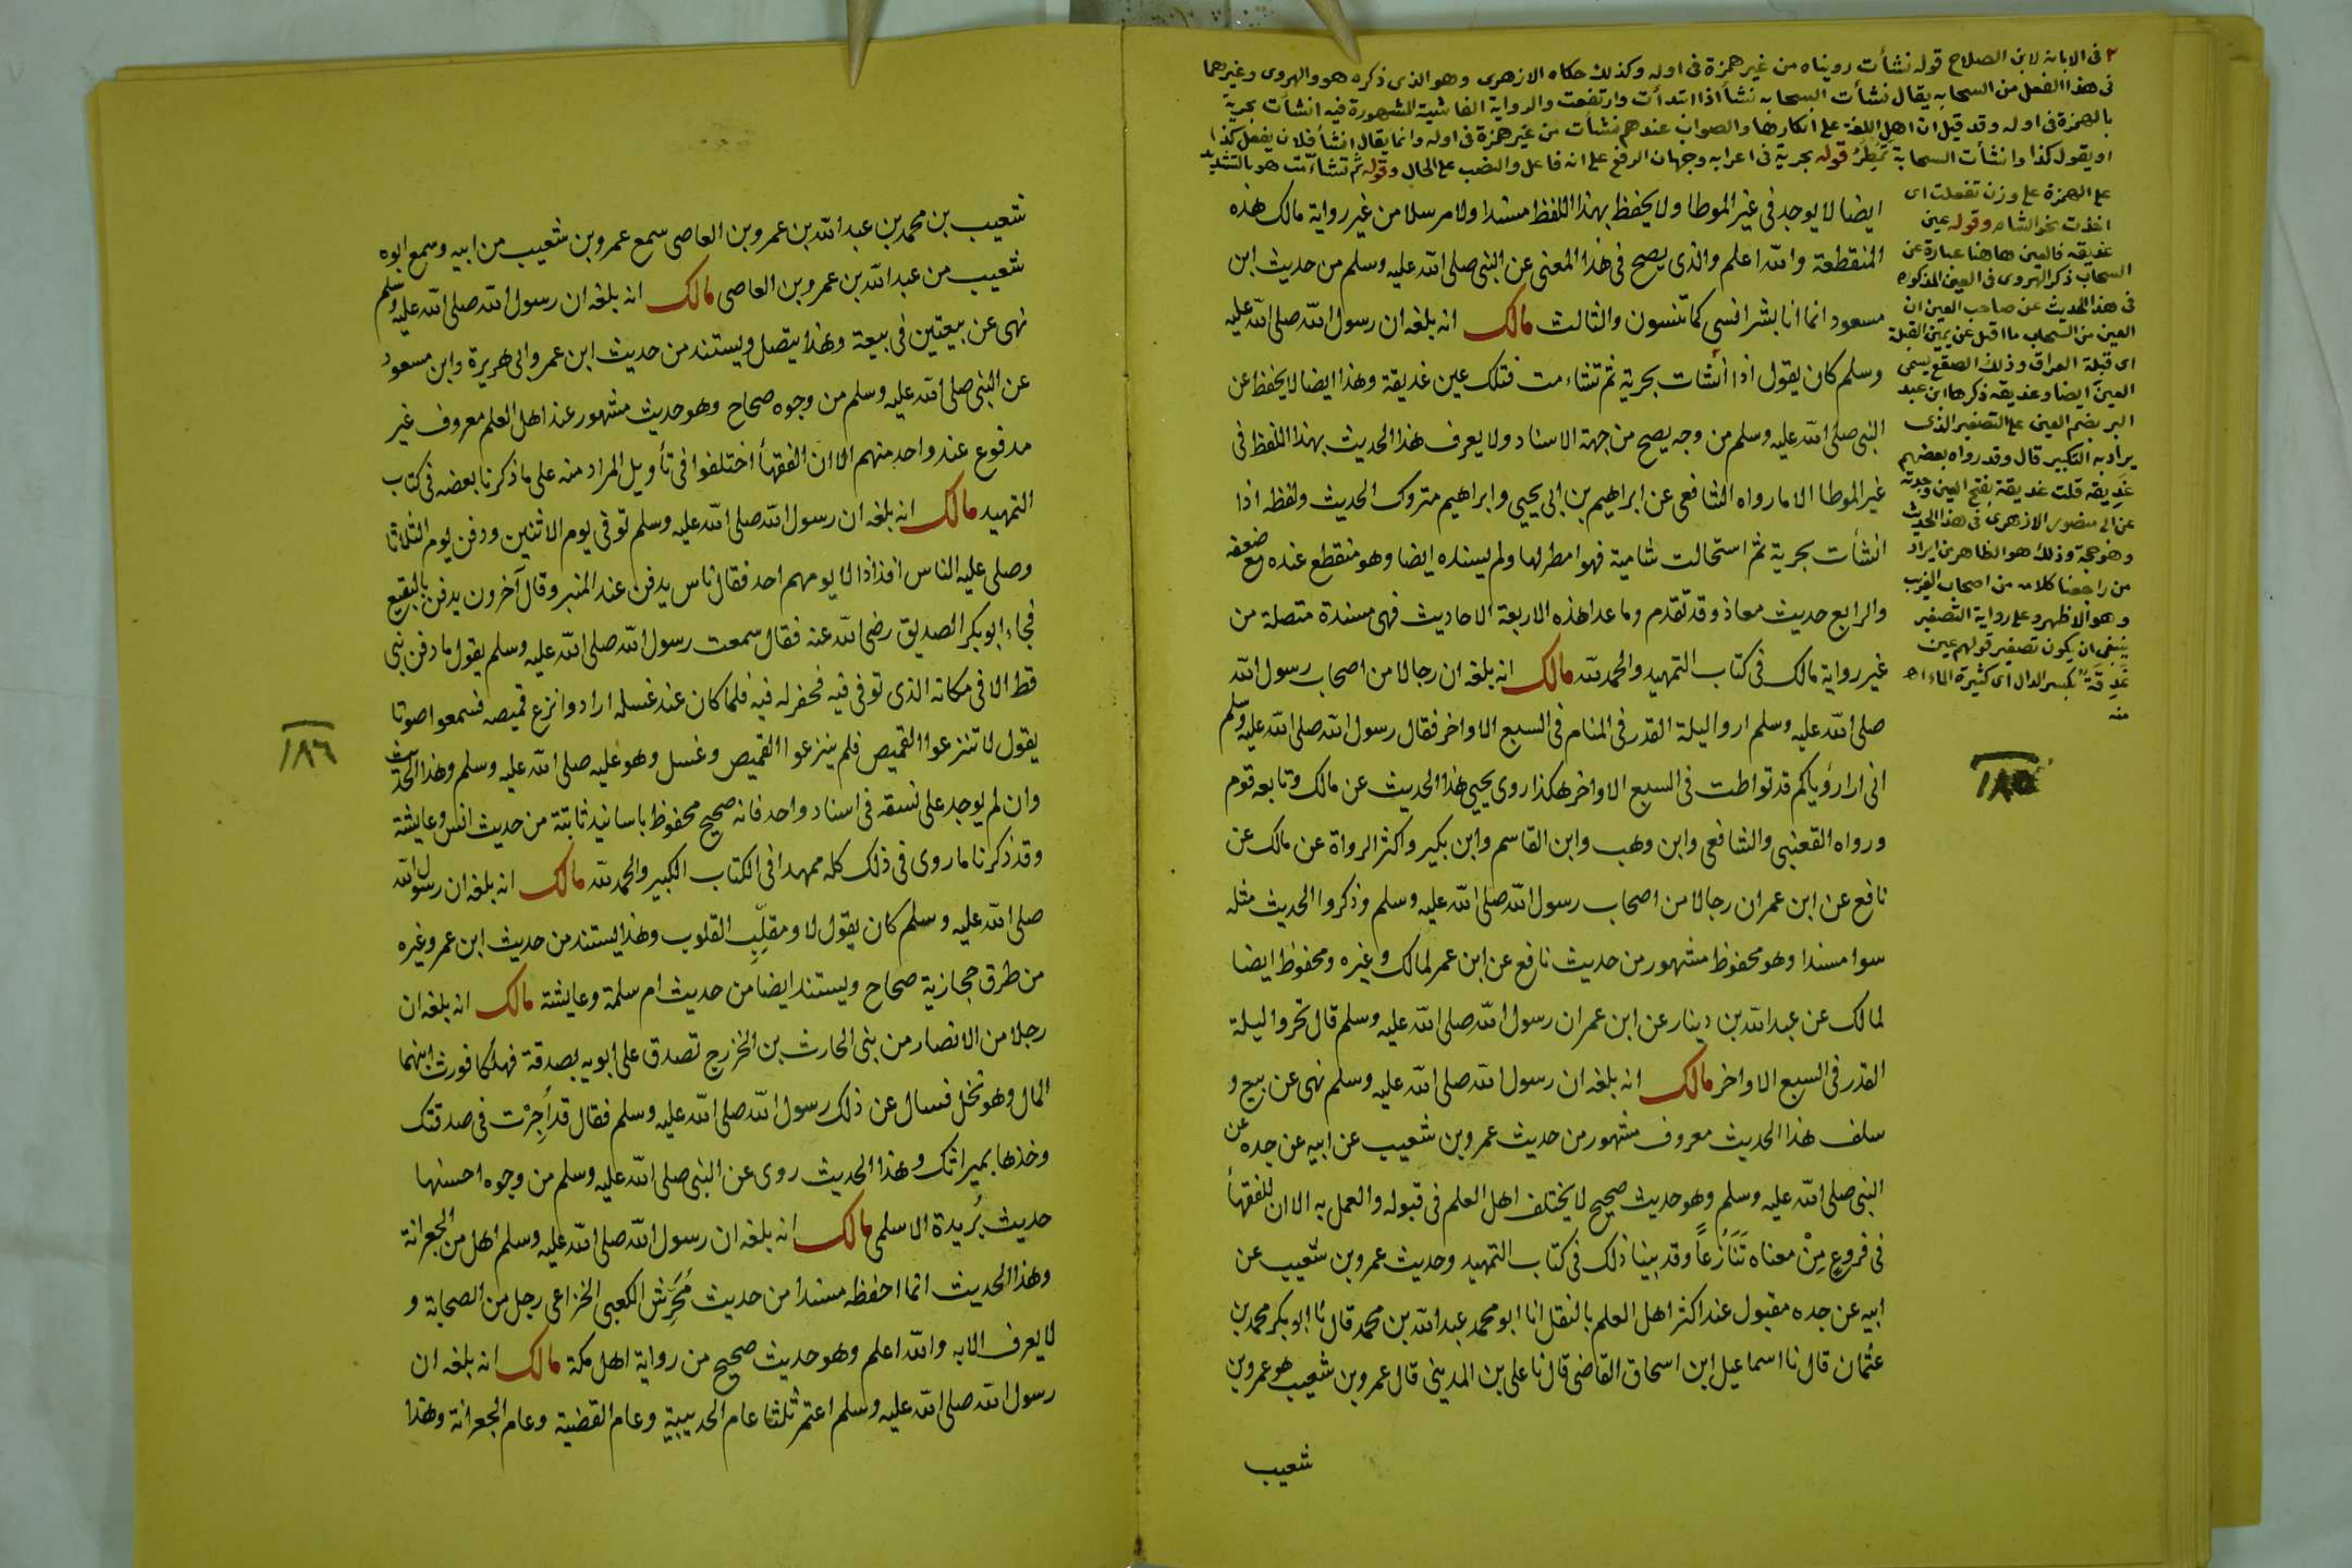 ٢ فى الابانة لابن الصلاح قوله نشأت رويناه من غير همزة فى اوله وكذلك حكاه الازهرى وهو الذى ذكره هو والهروى وغيرهما
فى هذا الفعل من السحابه يقال نشأت السحابه نشأ اذا ابتدأت وارتفعت والرواية الفاشية المشهورة فيه انشأت بحرية
بالهمزة فى اوله وقد قيل ان اهل اللغة على انكارها والصواب عندهم نشأت من غير همزة فى اوله وانما يقال انشأ فلان يفعل كذا
او يقول كذا وانشأت السحابة تمطر قوله بحرية فى اعرابه وجهان الرفع على انه فاعل والنصب على الحال وقوله ثم تشاءمت هو بالتشديد
على الهمزة على وزن تفعلت اى
اخذت نحو الشام وقوله عين
غديقه فالعين هاهنا عبارة عن
السحاب ذكر الهروى فى العين المذكوره
فى هذا الحديث عن صاحب العين ان
العين من السحاب ما اقبل عن يمين القبلة
اى قبلة العراق وذلك الصقع يسمى
العين ايضا وغديقه ذكرها ابن عبد
البر بضم الغين على التصغير الذى
يراد به التكبير قال وقد رواه بعضهم
غديقه قلت غديقة بفتح الغين وجدته
عن ابى منصور الازهرى فى هذا الحديث
وهو حجة وذلك هو الظاهر من ايراد
من راجعنا كلامه من اصحاب الغريب
وهو الاظهر وعلى رواية التصغير
ينبغى ان يكون تصغير قولهم عين
غدقة بكسر الدال اى كثيرة الماء اهـ
منه
ايضا لا يوجد فى غير الموطا ولا يحفظ بهذا اللفظ مسندا ولا مرسلا من غير رواية مالك هذه
المنقطعة والله اعلم والذى يصح فى هذا المعنى عن النبى صلى الله عليه وسلم من حديث ابن
مسعود انما انا بشر انسى كما تنسون والثالث مالك انه بلغه ان رسول الله صلى الله عليه
وسلم كان يقول اذا أنشات بحرية ثم تشاءمت فتلك عين غديقة وهذا ايضا لا يحفظ عن
النبى صلى الله عليه وسلم من وجه يصح من جهة الاسناد ولا يعرف هذا الحديث بهذا اللفظ فى
غير الموطا الا ما رواه الشافعى عن ابراهيم بن ابى يحيى وابراهيم متروك الحديث ولفظه اذا
انشأت بحرية ثم استحالت شامية فهو امطر لها ولم يسنده ايضا وهو منقطع عنده مع ضعفه
والرابع حديث معاذ وقد تقدم وما عدا هذه الاربعة الاحاديث فهى مسندة متصلة من
غير رواية مالك فى كتاب التمهيد والحمد لله مالك انه بلغه ان رجالا من اصحاب رسول الله
صلى الله عليه وسلم اروا ليلة القدر فى المنام فى السبع الاواخر فقال رسول الله صلى الله عليه وسلم
انى ارا رؤياكم قد تواطت فى السبع الاواخر هكذا روى يحيى هذا الحديث عن مالك وتابعه قوم
ورواه القعنبى والشافعى وابن وهب وابن القاسم وابن بكير واكثر الرواة عن مالك عن
نافع عن ابن عمر ان رجالا من اصحاب رسول الله صلى الله عليه وسلم وذكروا الحديث مثله
سوا مسندا وهو محفوظ مشهور من حديث نافع عن ابن عمر لمالك وغيره ومحفوظ ايضا
لمالك عن عبد الله بن دينار عن ابن عمر ان رسول الله صلى الله عليه وسلم قال تحروا ليلة
القدر فى السبع الاواخر مالك انه بلغه ان رسول الله صلى الله عليه وسلم نهى عن بيع و
سلف هذا الحديث معروف مشهور من حديث عمرو بن شعيب عن ابيه عن جده عن
النبى صلى الله عليه وسلم وهو حديث صحيح لا يختلف اهل العلم فى قبوله والعمل به الا ان للفقهأ
فى فروع مِنْ معناه تَنَازُعاً وقد بينا ذلك فى كتاب التمهيد وحديث عمرو بن شعيب عن
ابيه عن جده مقبول عند اكثر اهل العلم بالنقل انا ابو محمد عبد الله بن محمد قال نا ابو بكر محمد بن
عثمان قال نا اسماعيل ابن اسحاق القاضى قال نا على بن المدينى قال عمرو بن شعيب هو عمرو بن
شعيب
١٨٥
شعيب بن محمد بن عبد الله بن عمرو بن العاصى سمع عمرو بن شعيب من ابيه وسمع ابوه
شعيب من عبد الله بن عمرو بن العاصى مالك انه بلغه ان رسول الله صلى الله عليه وسلم
نهى عن بيعتين فى بيعة وهذا يتصل ويستند من حديث ابن عمر وابى هريرة وابن مسعود
عن النبى صلى الله عليه وسلم من وجوه صحاح وهو حديث مشهور عند اهل العلم معروف غير
مدفوع عند واحد منهم الا ان الفقهأ اختلفوا فى تأويل المراد منه على ما ذكرنا بعضه فى كتاب
التمهيد مالك انه بلغه ان رسول الله صلى الله عليه وسلم توفى يوم الاثنين ودفن يوم الثلاثا
وصلى عليه الناس افذاذا لا يومهم احد فقال ناس يدفن عند المنبر وقال آخرون يدفن بالبقيع
فجاء ابو بكر الصديق رضى الله عنه فقال سمعت رسول الله صلى الله عليه وسلم يقول ما دفن نبى
قط الا فى مكانه الذى توفى فيه فحفر له فيه فلما كان عند غسله ارادوا نزع قميصه فسمعوا صوتا
يقول لا تنزعوا القميص فلم ينزعوا القميص وغسل وهو عليه صلى الله عليه وسلم وهذا الحديث
وان لم يوجد على نسقه فى اسناد واحد فانه صحيح محفوظ باسانيد ثابتة من حديث انس وعايشة
وقد ذكرنا ما روى فى ذلك كله ممهدا فى الكتاب الكبير والحمد لله مالك انه بلغه ان رسول الله
صلى الله عليه وسلم كان يقول لا ومقلِّبِ القلوب وهذا يستند من حديث ابن عمر وغيره
من طرق حجازية صحاح ويستند ايضا من حديث ام سلمة وعايشة مالك انه بلغه ان
رجلا من الانصار من بنى الحارث بن الخزرج تصدق على ابويه بصدقة فهلكا فورث ابنهما
المال وهو نخل فسال عن ذلك رسول الله صلى الله عليه وسلم فقال قد أُجِرْت فى صدقتك
وخذها بميراثك وهذا الحديث روى عن النبى صلى الله عليه وسلم من وجوه احسنها
حديث بُريدة الاسلمى مالك انه بلغه ان رسول الله صلى الله عليه وسلم اهل من الجعرانة
وهذا الحديث انما احفظه مسندا من حديث مُحَرِّش الكعبى الخزاعى رجل من الصحابة و
لا يعرف الا به والله اعلم وهو حديث صحيح من رواية اهل مكة مالك انه بلغه ان
رسول الله صلى الله عليه وسلم اعتمر ثلثا عام الحديبية وعام القضية وعام الجعرانة وهذا
١٨٦